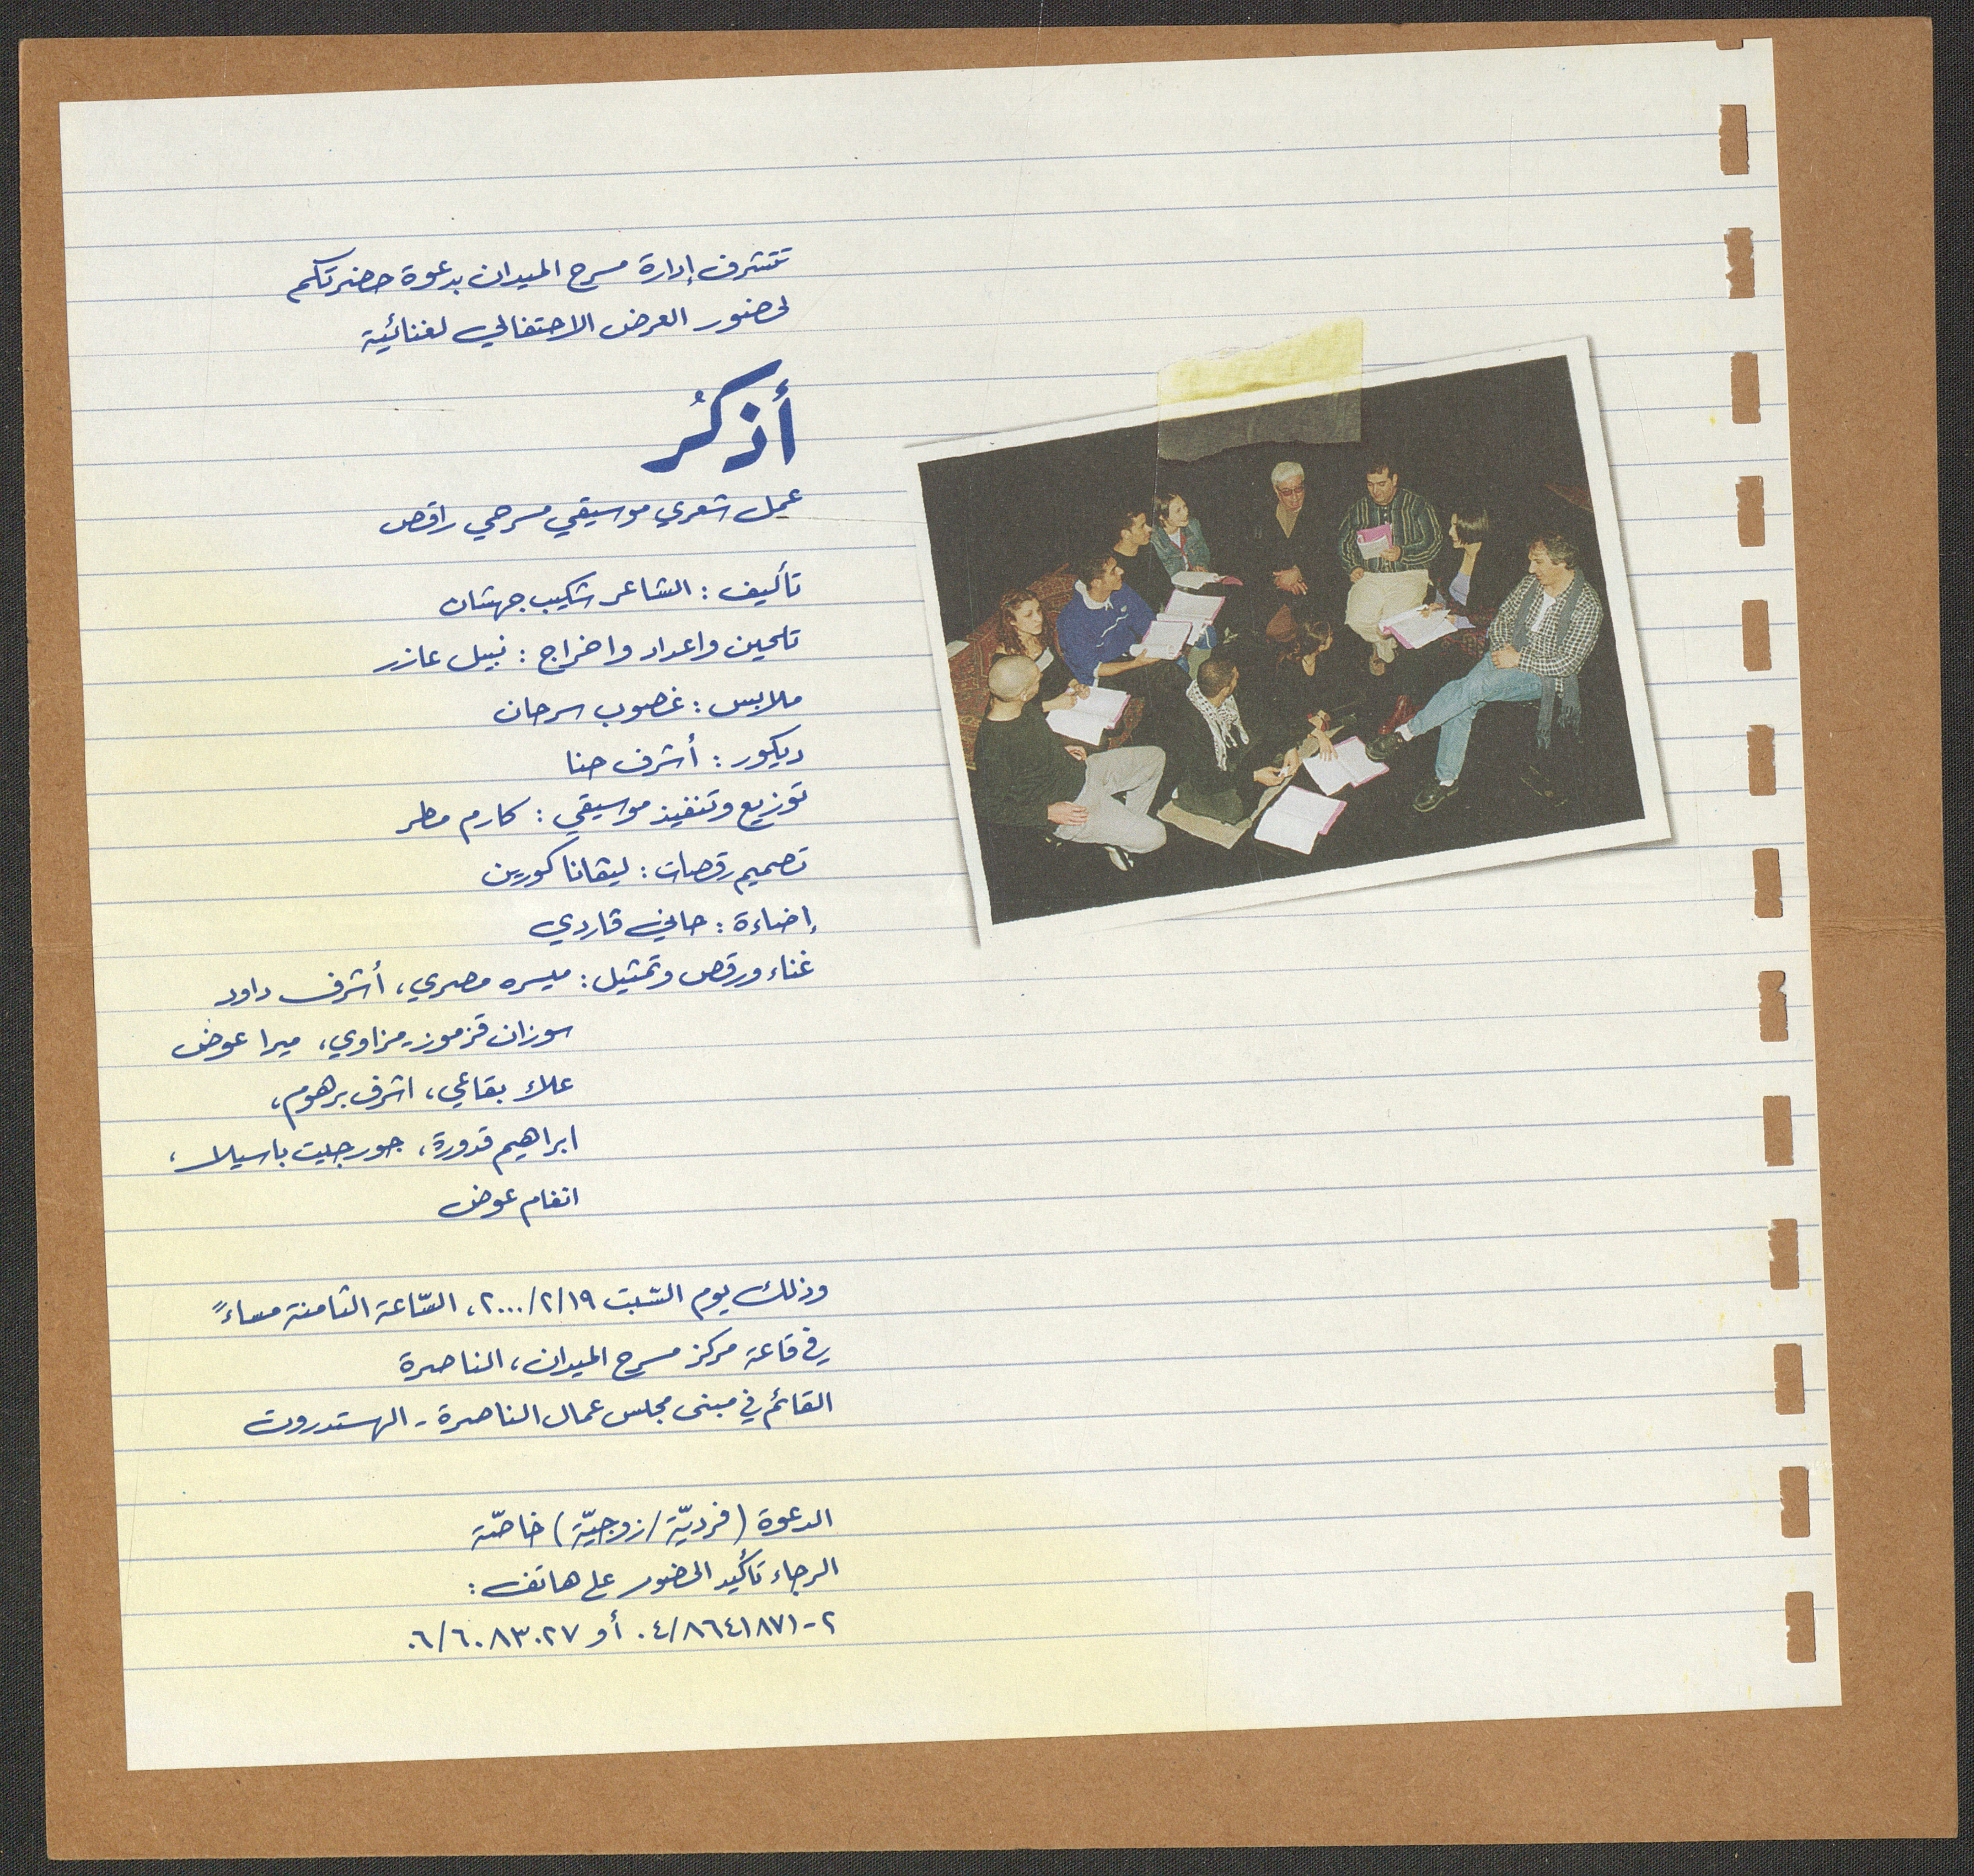 تتشرف إدارة مسرح الميدان بدعوة حضرتكم
لحضور العرض الاحتفالي لغنائية
أذكُر
عمل شعري موسيقي مسرحي راقص
تأليف : الشاعر شكيب جهشان
تلحين واعداد واخراج : نبيل عازر
ملابس : غصوب سرحان
ديكور : أشرف حنا
توزيع وتنفيذ موسيقي : كارم مطر
تصميم رقصات : ليڤانا كورين
إضاءة : حاني ڤاردي
غناء ورقص وتمثيل : ميسره مصري، أشرف داود
سوزان قزموز-مزاوي، ميرا عوض
علاء بقاعي، اشرف برهوم،
ابراهيم قدورة، جورجيت باسيلا،
انغام عوض
وذلك يوم السّبت ٢٠٠٠/٢/١٩، السّاعة الثامنة مساءً
في قاعة مركز مسرح الميدان، الناصرة
القائم في مبنى مجلس عمال الناصرة - الهستدروت
الدعوة (فرديّة/زوجيّة) خاصّة
الرجاء تأكيد الحضور على هاتف :
٠٤/٨٦٤١٨٧١-٢ أو ٠٦/٦٠٨٣٠٢٧